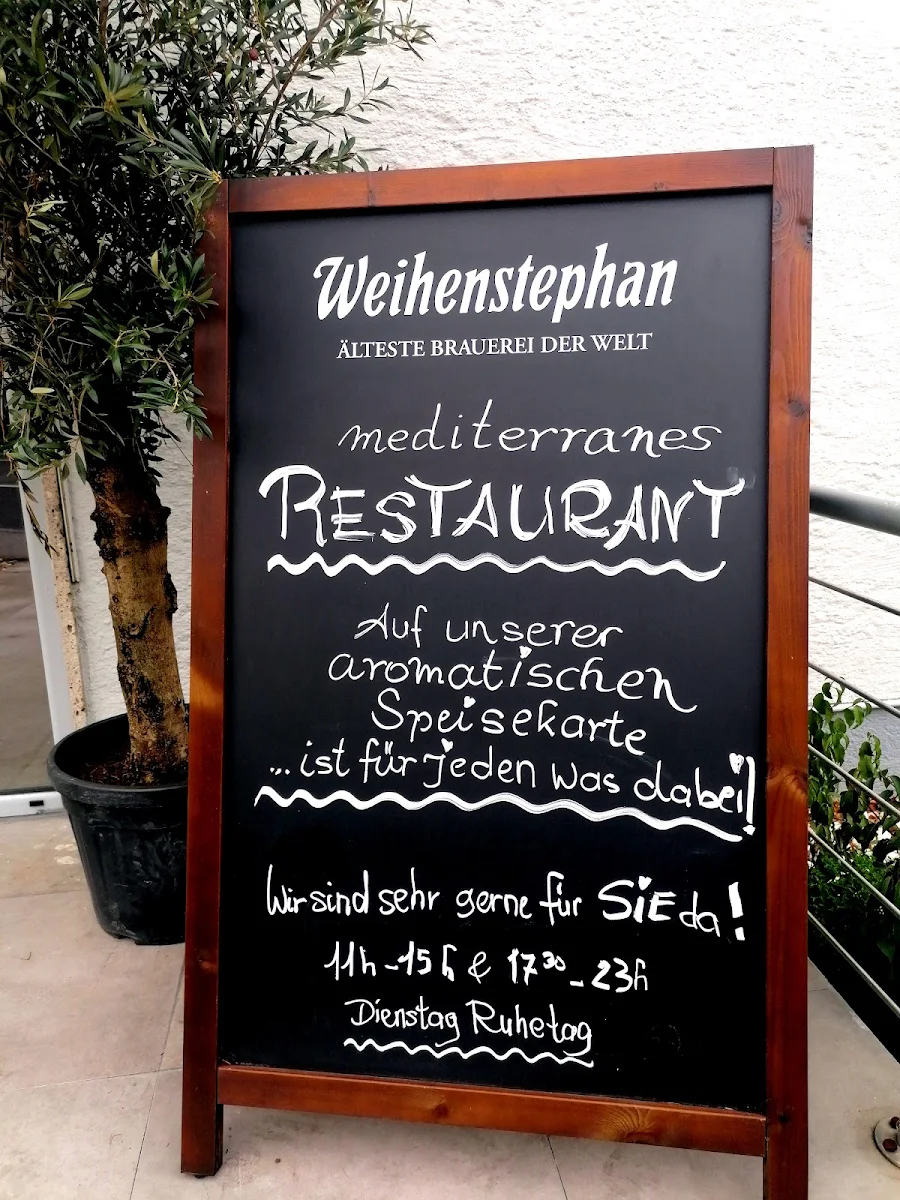 Weihenstephan
ÄLTESTE BRAUEREI DER WELT
mediterranes
RESTAURANT
Auf unserer
aromatischen
Speisekarte
... ist für Jeden was dabei!
Wir sind sehr gerne für SiE da!
11h - 15h & 17³⁰ - 23h
Dienstag Ruhetag